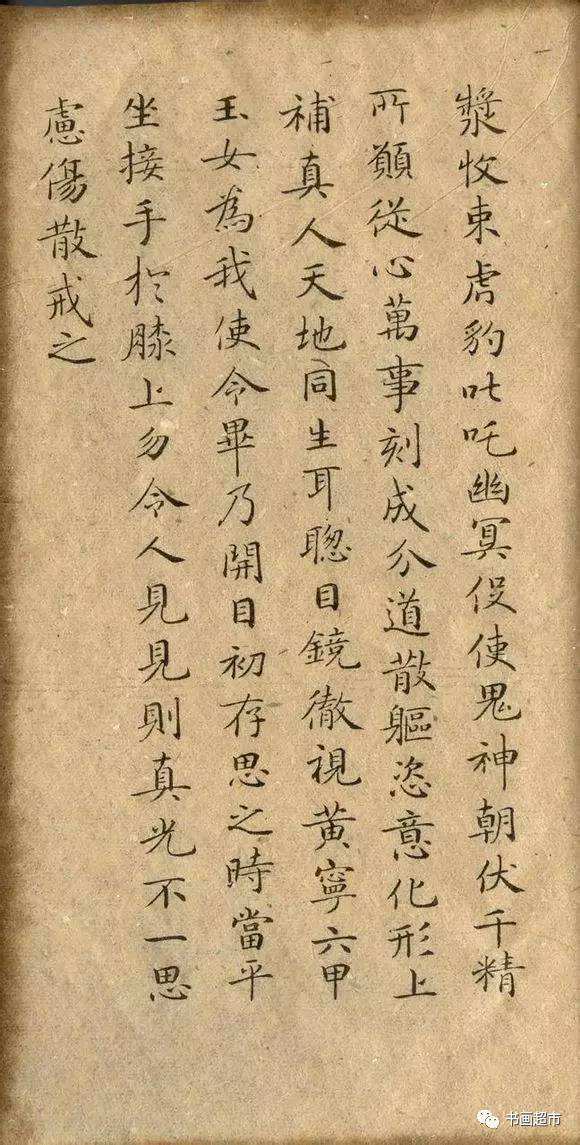 漿收束虎豹叱吒幽冥役使鬼神朝伏千精
所願從心萬事刻成分道散軀恣意化形上
補真人天地同生耳聰目鏡徹視黃寧六甲
玉女為我使令畢乃開目初存思之時當平
坐接手於膝上勿令人見見則真光不一思
慮傷散戒之
书画超市